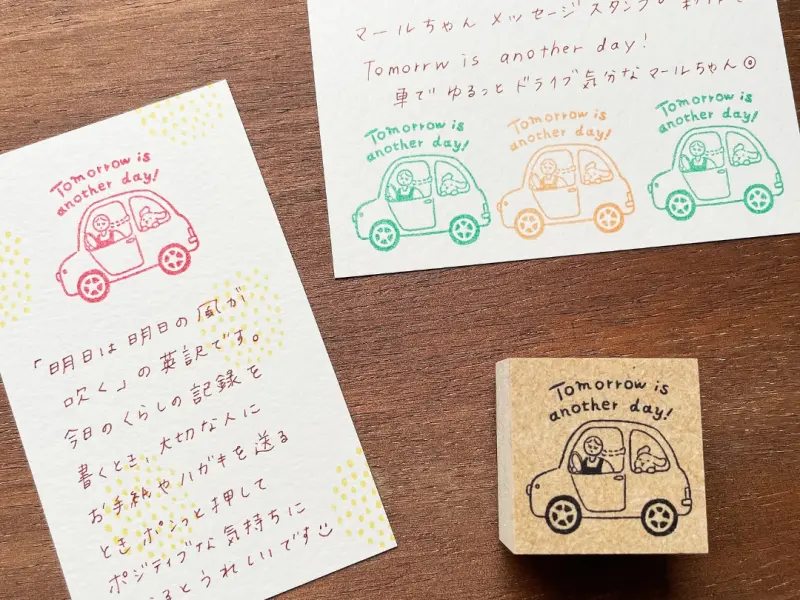 Tomorrow is
another day!
「明日は明日の風が
吹く」の英訳です。
今日のくらしの記録を
書くとき、大切な人に
お手紙やハガキを送る
ときポンっと押して
ポジティブな気持ちに
るとうれしいです
マールちゃん メッセージスタンプ
Tomorrw is another day!
車でゆるっとドライブ気分なマールちゃん
Tomorrow is
another day!
Tomorrow is
another day!
Tomorrow is
another day!
Tomorrow is
another day!